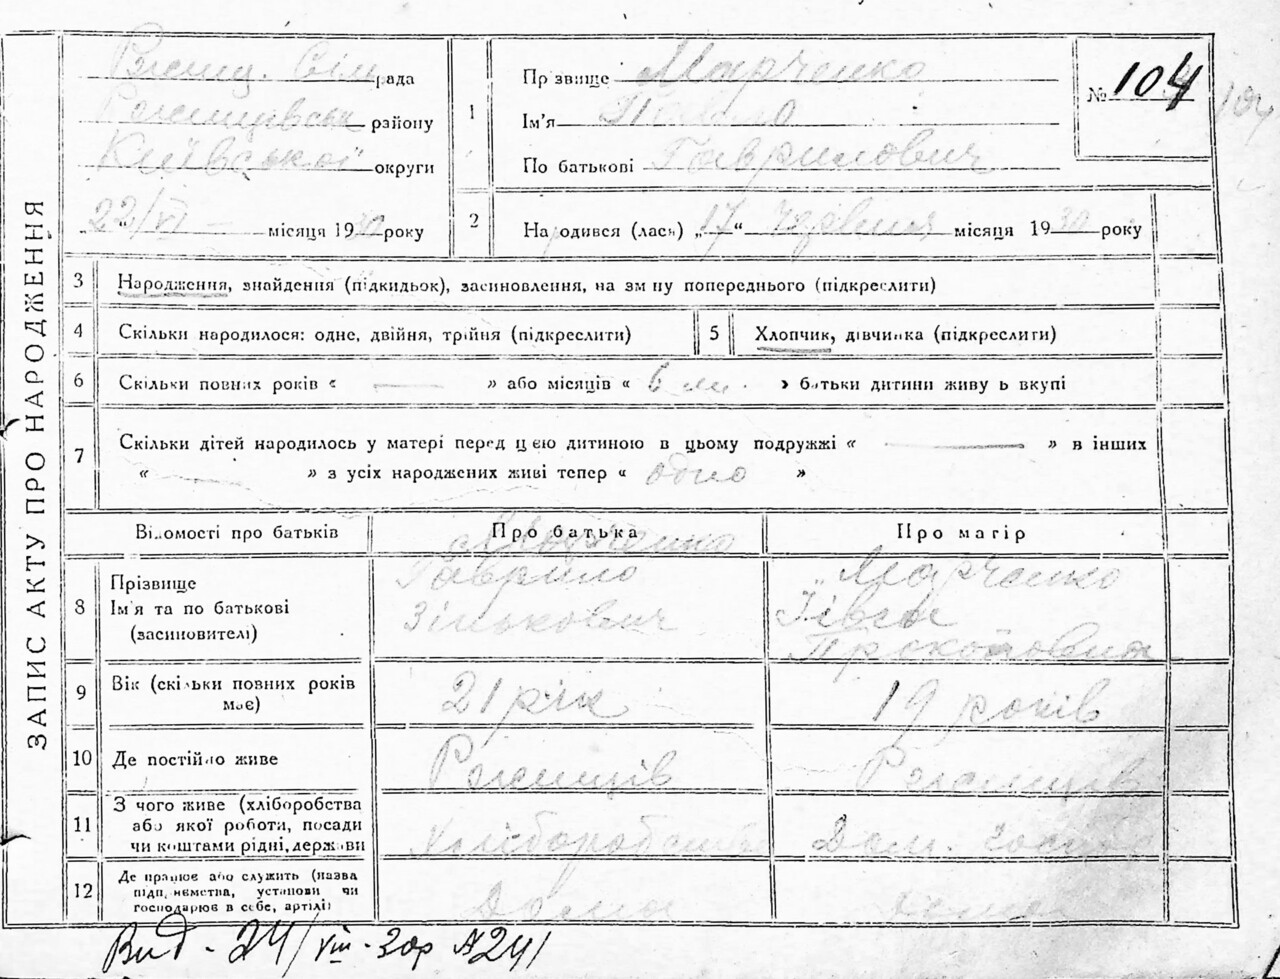 ЗАПИС АКТУ ПРО НАРОДЖЕННЯ
Ржищ. Сільрада
Ржищівськ району
Київської округи
"22/VI — місяця 1930 року
1 Прізвище Марченко
Ім'я
По батькові Гаврилович
№ 104
2 Народився (лась) „17“ червня місяця 1930 року
3 Народження, знайдення (підкидьок), засиновлення, на зміну попереднього (підкреслити)
4 Скільки народилося: одне, двійня, трійня (підкреслити)
5 Хлопчик, дівчинка (підкреслити)
6 Скільки повних років « — » або місяців « 6 м. » батьки дитини живуть вкупі
7 Скільки дітей народилось у матері перед цією дитиною в цьому подружжі « — » в інших
« — » з усіх народжених живі тепер « одно »
Відомості про батьків
Про батька
Про матір
8 Прізвище
Ім'я та по батькові
(засиновителі)
Марченко
Гаврило
Зінькович
Марченко
Прокопович
9 Вік (скільки повних років
має)
21 рік
19 років
10 Де постійно живе
Ржищів
Ржищів
11 З чого живе (хліборобства
або якої роботи, посади
чи коштами рідні, держави
Хліборобство
Дом. госпо
12 Де працює або служить (назва
підприємства, установи чи
господарює в себе, артілі)
Дома
Дома
Вид - 24/VIII - 30р №241